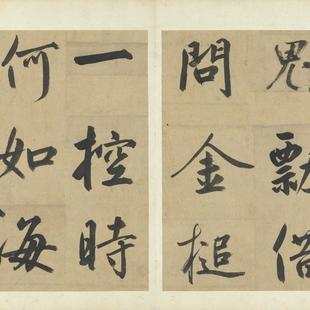 借
問金槌
一控時
何如海